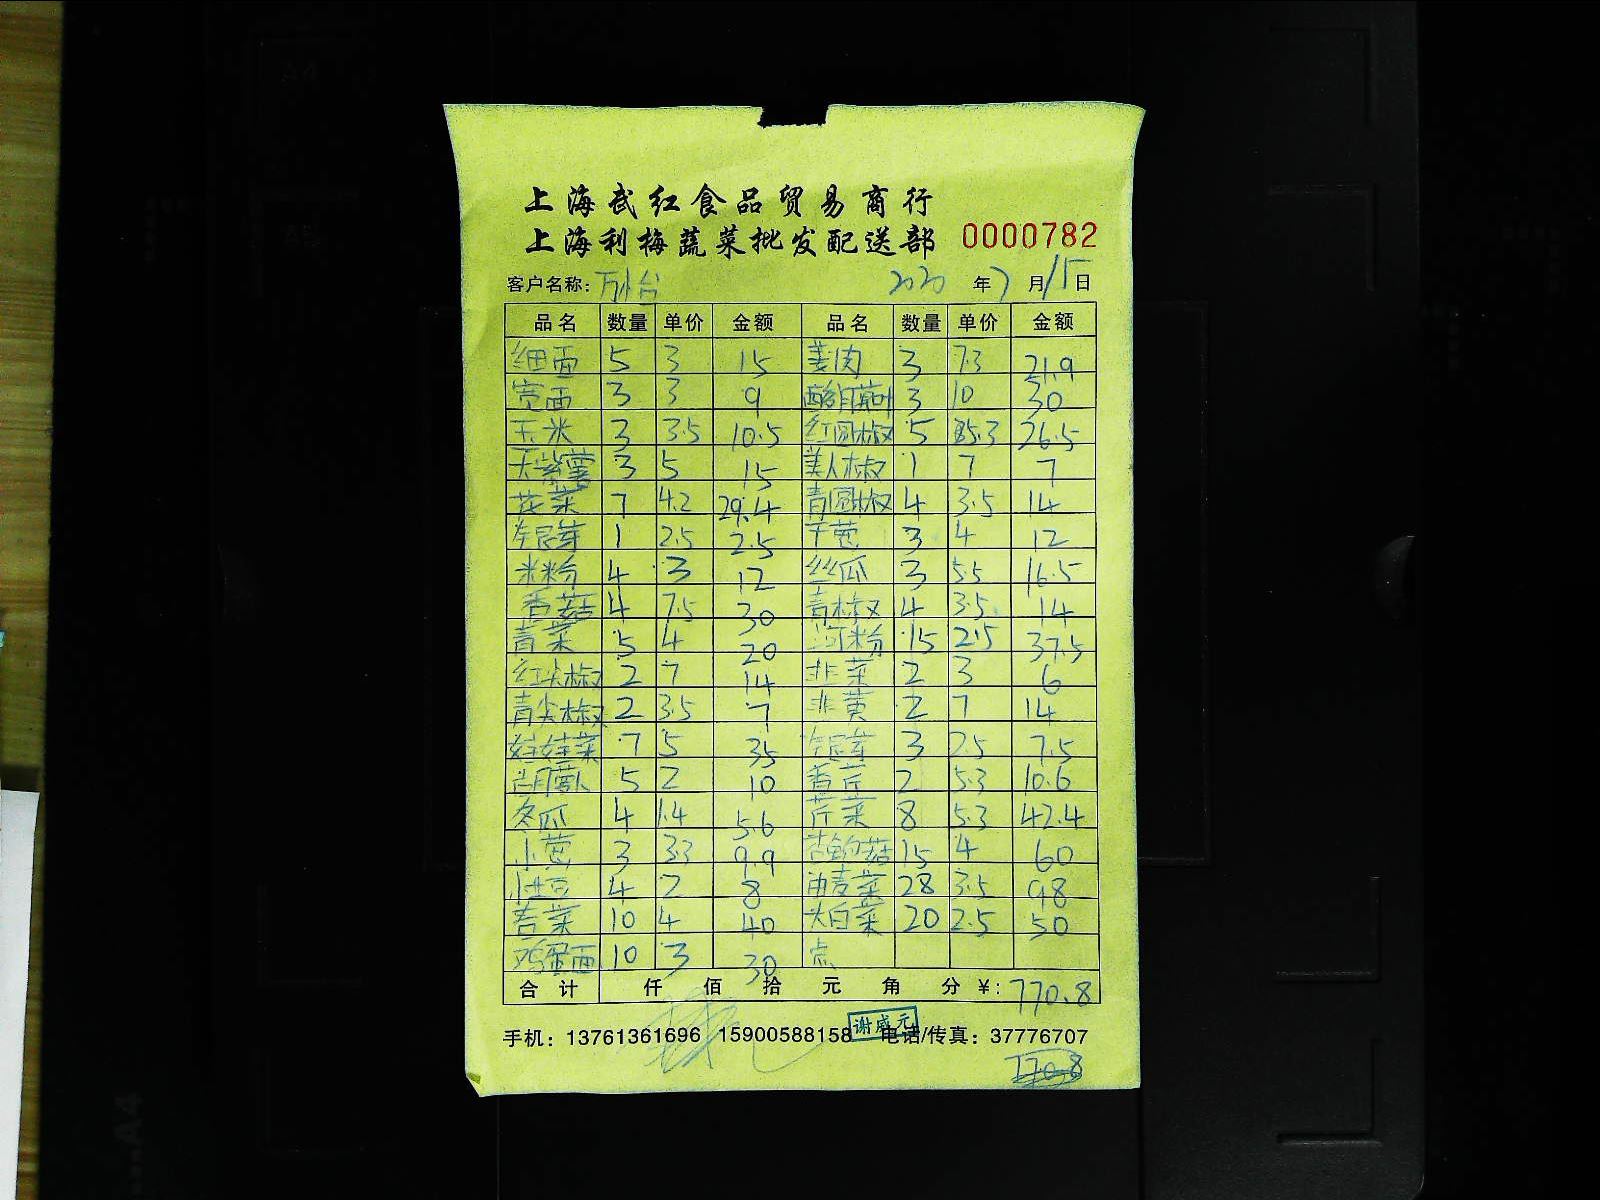 上海武红食品贸易商行
上海利梅蔬菜批发配送部 0000782
客户名称: 2020 年 7 月 15 日
品名 数量 单价 金额 品名 数量 单价 金额
细面 5 3 15 姜肉 3 7.3 21.9
宽面 3 3 9 3 10 30
玉米 3 3.5 10.5 红圆椒 5 5.3 26.5
紫薯 3 5 15 美人椒 1 7 7
花菜 7 4.2 29.4 青圆椒 4 3.5 14
银芽 1 2.5 2.5 干葱 3 4 12
米粉 4 3 12 丝瓜 3 5.5 16.5
香菇 4 7.5 30 青椒 4 3.5 14
青菜 5 4 20 河粉 15 2.5 37.5
红尖椒 2 7 14 韭菜 2 3 6
青尖椒 2 3.5 7 韭黄 2 7 14
娃娃菜 7 5 35 银芽 3 2.5 7.5
5 2 10 香芹 2 5.3 10.6
冬瓜 4 1.4 5.6 芹菜 8 5.3 42.4
小葱 3 3.3 9.9 15 4 60
小土豆 4 2 8 油麦菜 28 3.5 98
10 4 40 大白菜 20 2.5 50
鸡蛋面 10 3 30 点
合计 仟 佰 拾 元 角 分 ¥: 770.8
手机: 13761361696 15900588158 谢威元 电话/传真: 37776707
770.8